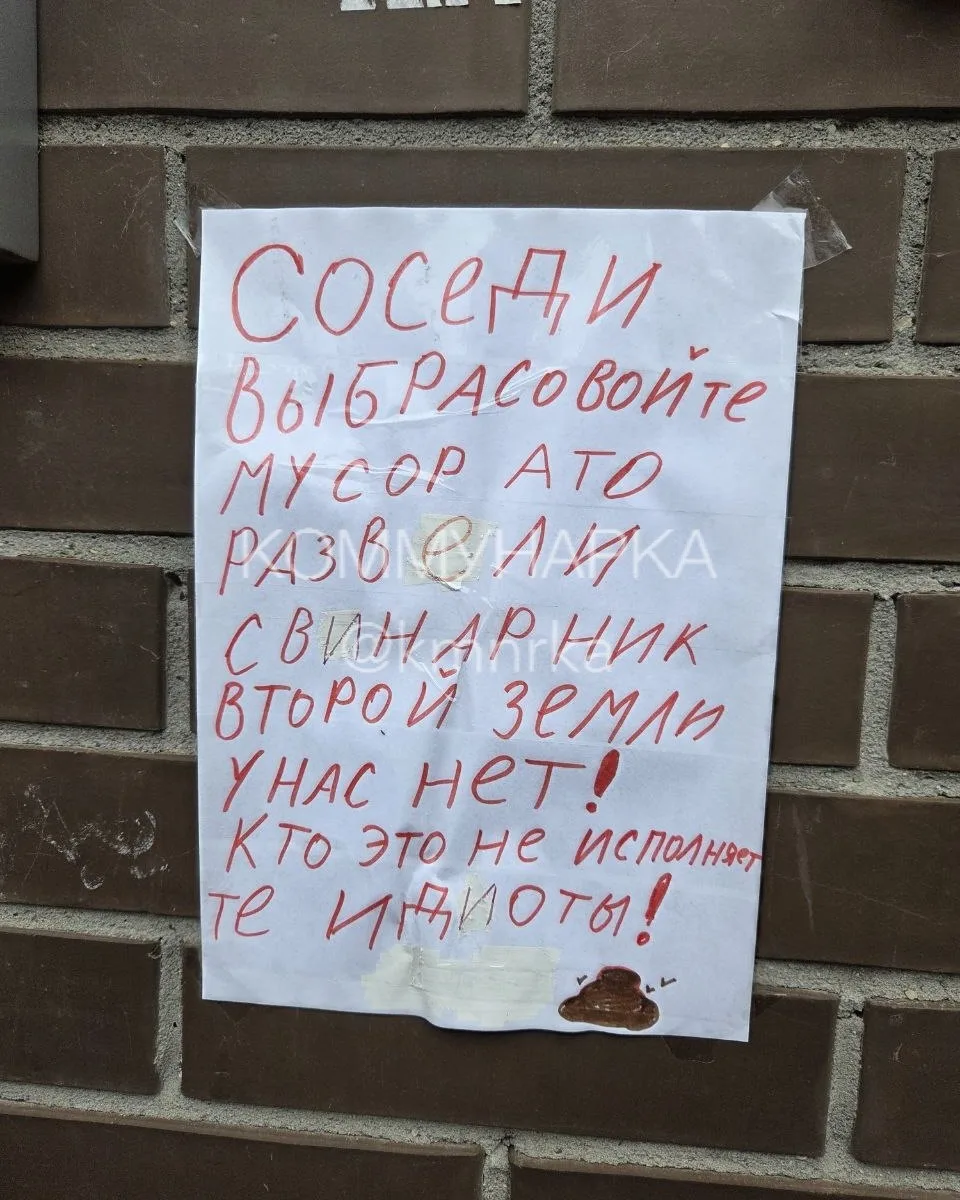 Соседи
выбрасовойте
мусор ато
развели
свинарник
второй земли
унас нет!
Кто это не исполняет
те идиоты!
КОММУНАРКА
@kmnrka